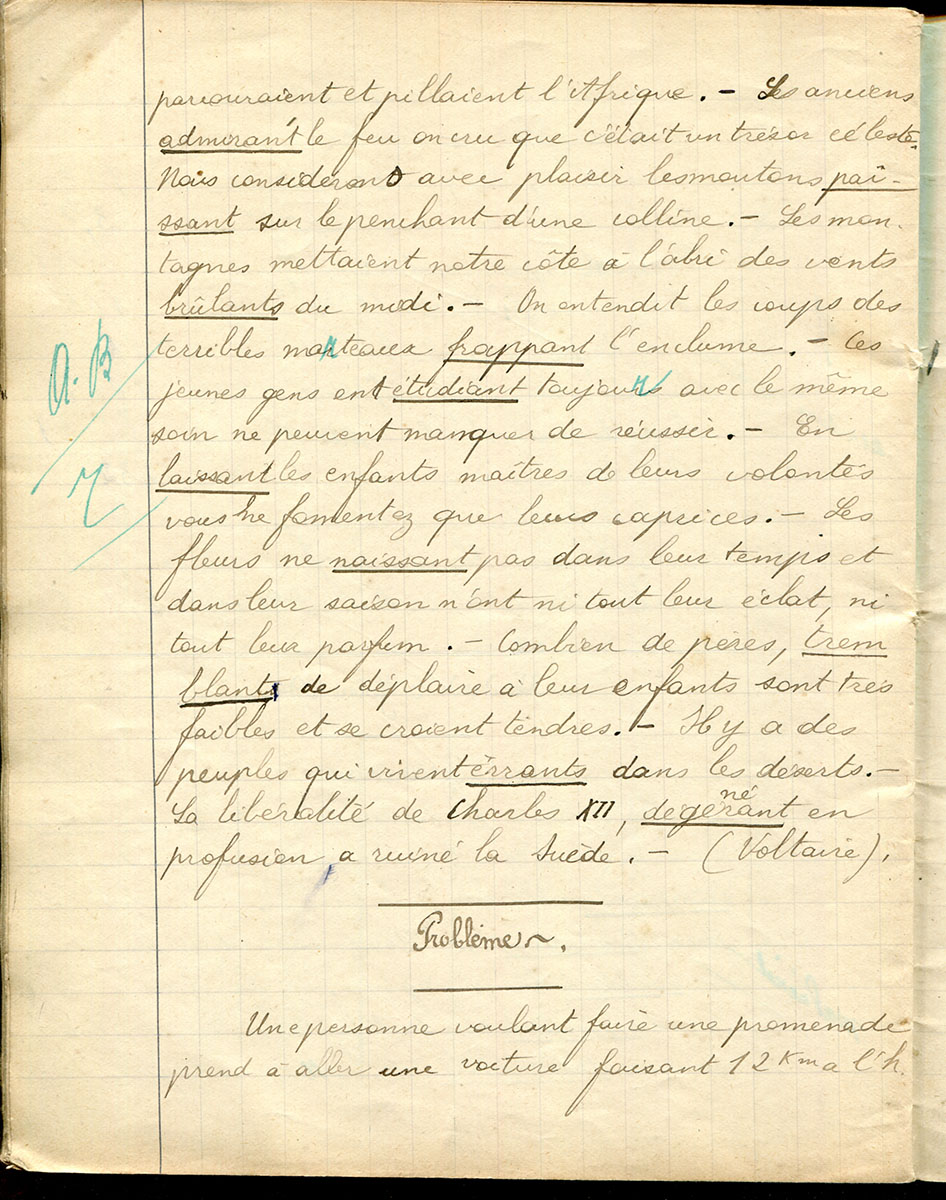 parcouraient et pillaient l'Afrique. - Les anciens
admirant le feu on cru que c'était un trésor céleste.
Nous considérons avec plaisir les moutons paî-
ssant sur le penchant d'une colline. - Les mon-
tagnes mettaient notre côte à l'abri des vents
brûlants du midi. - On entendit les coups des
terribles marteaux frappant l'enclume. - Ces
A. B
jeunes gens ent étudiant toujours avec le même
soin ne peuvent manquer de réussir. - En
7
laissant les enfants maîtres de leurs volontés
vous ne fomentez que leurs caprices. - Les
fleurs ne naissant pas dans leur temps et
dans leur saison n'ont ni tout leur éclat, ni
tout leur parfum. - Combien de pères, trem
blants de déplaire à leur enfants sont très
faibles et se croient tendres. - Il y a des
peuples qui vivent errants dans les déserts. -
La libéralité de Charles XII, dégénérant en
profusion a ruiné la Suède. - (Voltaire).
Problème.
Une personne voulant faire une promenade
prend à aller une voiture faisant 12 Km a l'h.